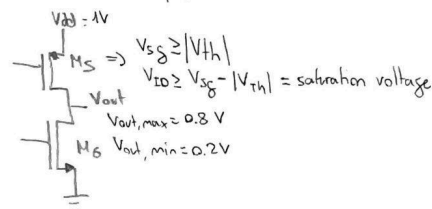 Vdd = 1V
M5 => Vsg ≥ |Vth|
VID ≥ Vsg - |VTh| = saturation voltage
Vout
Vout, max = 0.8 V
M6 Vout, min = 0.2V